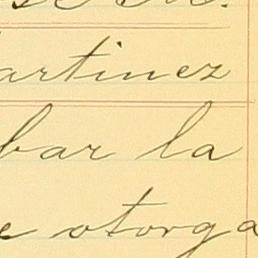 artinez
bar la
e otorga